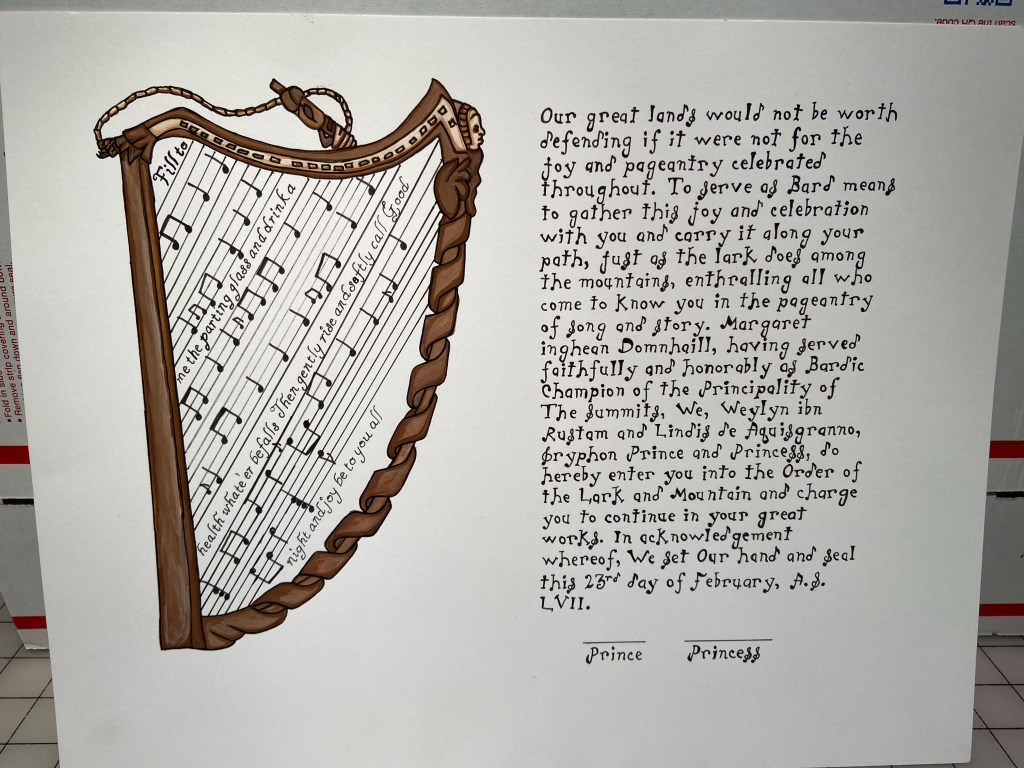 Fill to
me the parting glass and drink a
health whate'er befalls Then gently rise and softly call Good
night and joy be to you all
Our great lands would not be worth
defending if it were not for the
joy and pageantry celebrated
throughout. To serve as Bard means
to gather this joy and celebration
with you and carry it along your
path, just as the lark does among
the mountains, enthralling all who
come to know you in the pageantry
of song and story. Margaret
inghean Domnhaill, having served
faithfully and honorably as Bardic
Champion of the Principality of
The Summits, We, Weylyn ibn
Rustam and Lindis de Aquisgranno,
Gryphon Prince and Princess, do
hereby enter you into the Order of
the Lark and Mountain and charge
you to continue in your great
works. In acknowledgement
whereof, We set Our hand and seal
this 23rd day of February, A.S.
LVII.
Prince Princess
Scan the QR code.
• Fold in side
• Remove strip covering
down and around